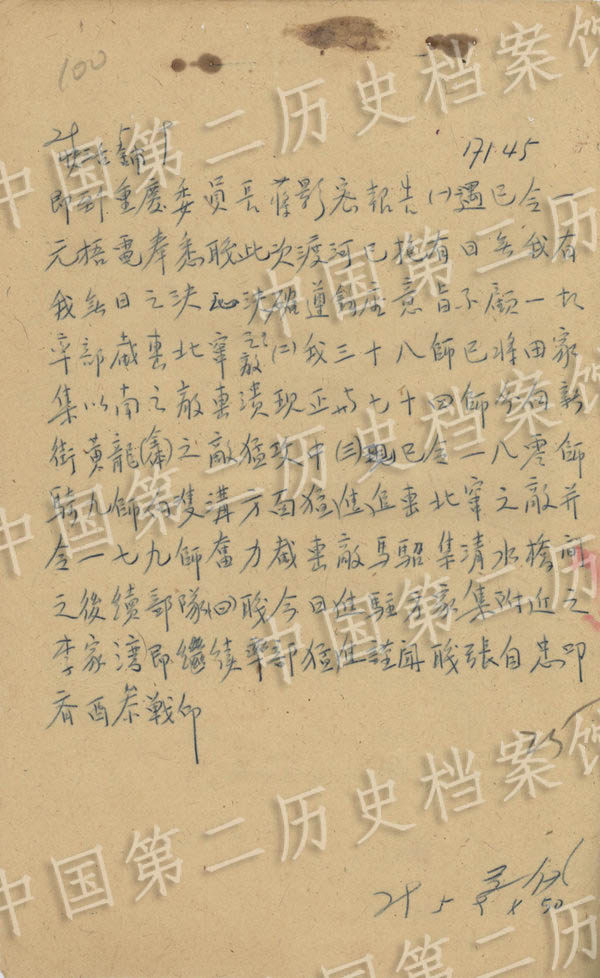 100
1745
即到重慶委員長蔣影密報告(一)遇已令一
元梧電奉悉職此次渡河已抱有日無我有
我無日之決心決確遵鈞座意旨不顧一切
率部截擊北竄之敵(二)我三十八師已將田家
集以南之敵擊潰現正与七十四師向新
街黃龍(壋)之敵猛攻中(三)現已令一八零師
騎九師向雙溝方面猛進追擊北竄之敵并
令一七九師奮力截擊敵馬貂集清水橋
之後續部隊(四)職今日進駐家集附近之
李家灣即繼續率部猛進謹聞職張自忠叩
酉參戰印
中国第二历史档案馆